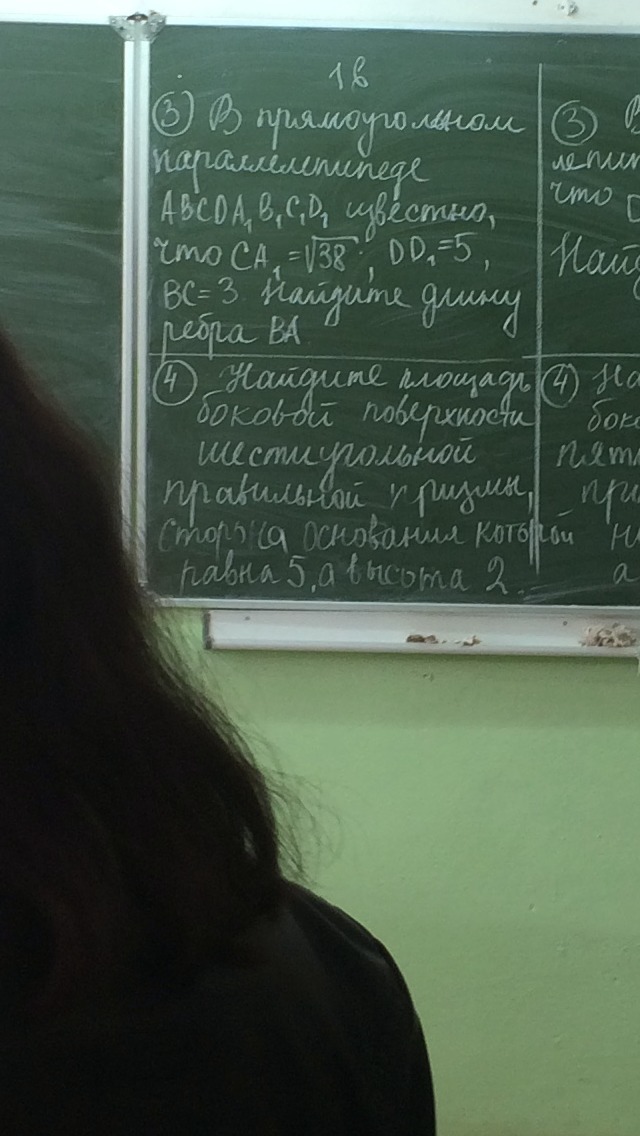 1 в
③ В прямоугольном
параллелепипеде
ABCDA₁B₁C₁D₁ известно,
что CA₁=√38; DD₁=5,
BC=3. Найдите длину
ребра BA
④ Найдите площадь
боковой поверхности
шестиугольной
правильной призмы,
сторона основания которой
равна 5, а высота 2.
③ В
что
④
а